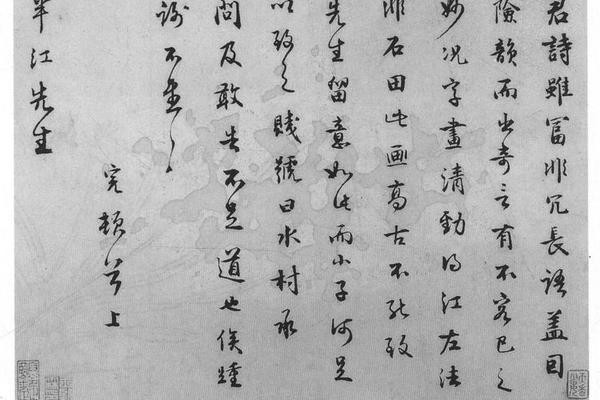 君詩雖富非冗長語蓋因
險韻而出奇言有不容已之
妙况字畫清勁得江左法
非石田此画高古不能致
先生留意如此而小子何足
以致之賤號曰水村承
問及敢告不足道也俟踵
謝不宣
半江先生
完頓首上